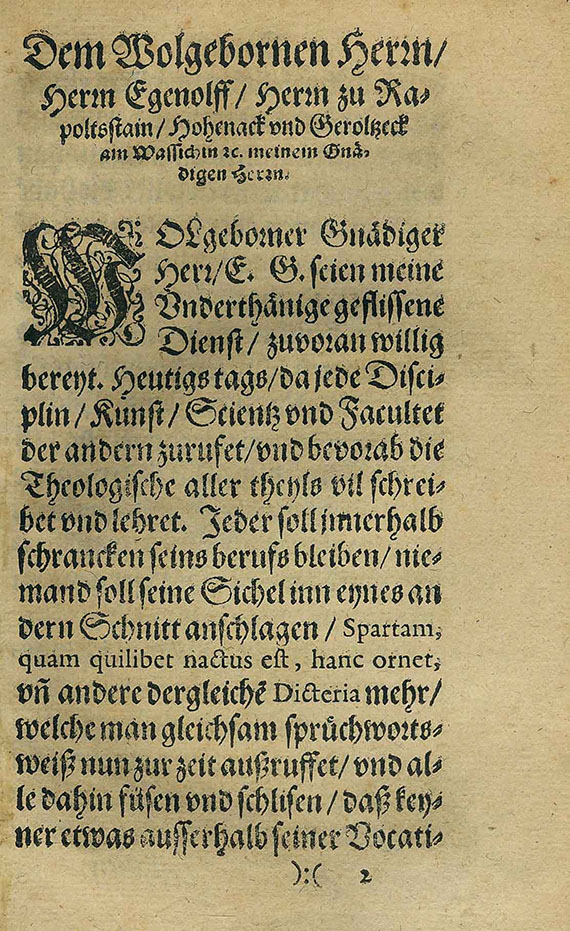 Dem Wolgebornen Herrn/
Herrn Egenolff/ Herrn zu Ra⸗
poltsstain/ Hohenack vnd Geroltzeck
am Wassichin ꝛc. meinem Gnä⸗
digen Herrn.
WOLgeborner Gnädiger
Herr/ E. G. seien meine
Vnderthänige geflissene
Dienst/ zuvoran willig
bereyt. Heutigs tags/ da jede Disci⸗
plin/ Kunst/ Scientz vnd Facultet
der andern zurufet/ vnd bevorab die
Theologische aller theyls vil schrei⸗
bet vnd lehret. Jeder soll innerhalb
schrancken seins berufs bleiben/ nie⸗
mand soll seine Sichel inn eynes an
dern Schnitt anschlagen/ Spartam,
quam quilibet nactus est, hanc ornet,
vñ andere dergleichẽ Dicteria mehr/
welche man gleichsam sprüchworts⸗
weiß nun zur zeit außruffet/ vnd al⸗
le dahin füsen vnd schlisen/ daß key⸗
ner etwas ausserhalb seiner Vocati⸗
):( 2